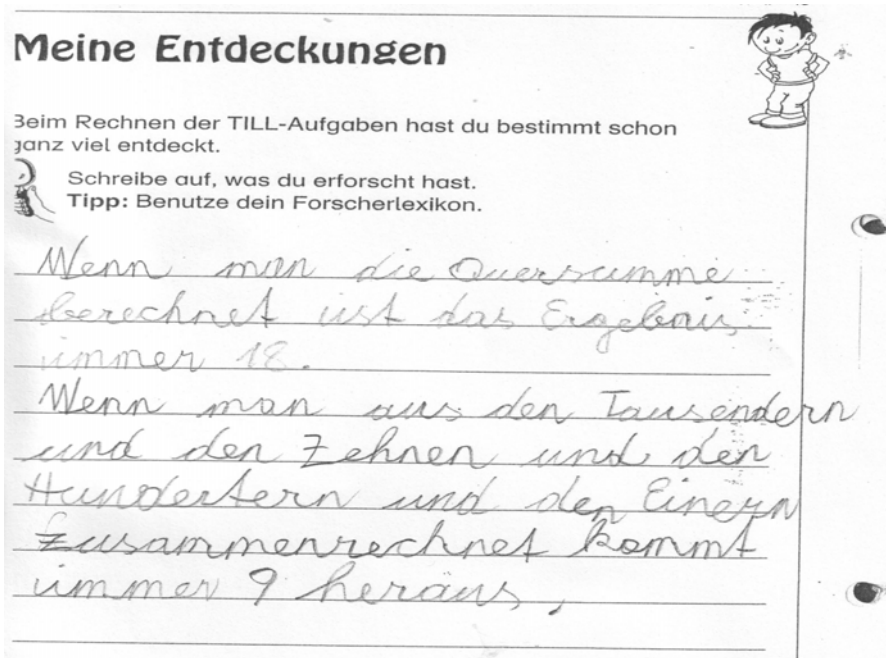 Meine Entdeckungen
Beim Rechnen der TILL-Aufgaben hast du bestimmt schon
ganz viel entdeckt.
Schreibe auf, was du erforscht hast.
Tipp: Benutze dein Forscherlexikon.
Wenn man die Quersumme
berechnet ist das Ergebnis
immer 18.
Wenn man aus den Tausendern
und den Zehnen und den
Hundertern und den Einern
zusammenrechnet kommt
immer 9 heraus,